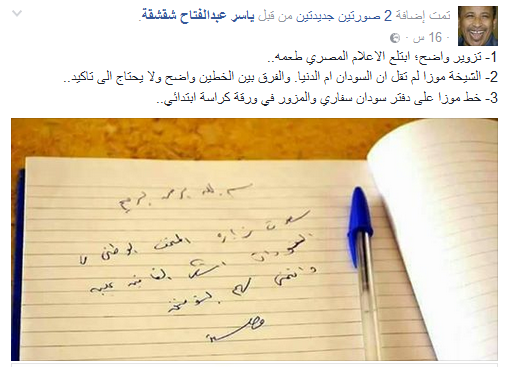 تمت إضافة 2 صورتين جديدتين من قبل ياسر عبدالفتاح شقشقة.
16 س ·
1- تزوير واضح؛ ابتلع الاعلام المصري طعمه..
2- الشيخة موزا لم تقل ان السودان ام الدنيا. والفرق بين الخطين واضح ولا يحتاج الى تاكيد..
3- خط موزا على دفتر سودان سفاري والمزور في ورقة كراسة ابتدائي..
بسم الله الرحمن الرحيم
سعدت بزيارة المتحف الوطني
السودان اشكر القائمين عليه
واتمنى لهم التوفيق